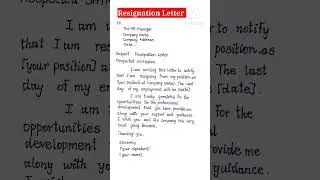 Resignation Letter
To
The HR Manager
Company Name
Company Address
Date
Subject: Resignation Letter
Respected Sir/Madam
I am writing this letter to notify
that I am resigning from my position as
[your position] at [company name]. The last
day of my employment will be [date].
I am truly grateful for the
opportunities for the professional
development that you have provided me
along with your support and guidance.
I wish you and the company the very
best going forward.
Thanking you.
Sincerely
[your signature]
[your name]
to notify
that I am resi
position as
[your position]
The last
day of my e
[date].
I am
for the
opportunities
development
provided me
along with you
guidance.